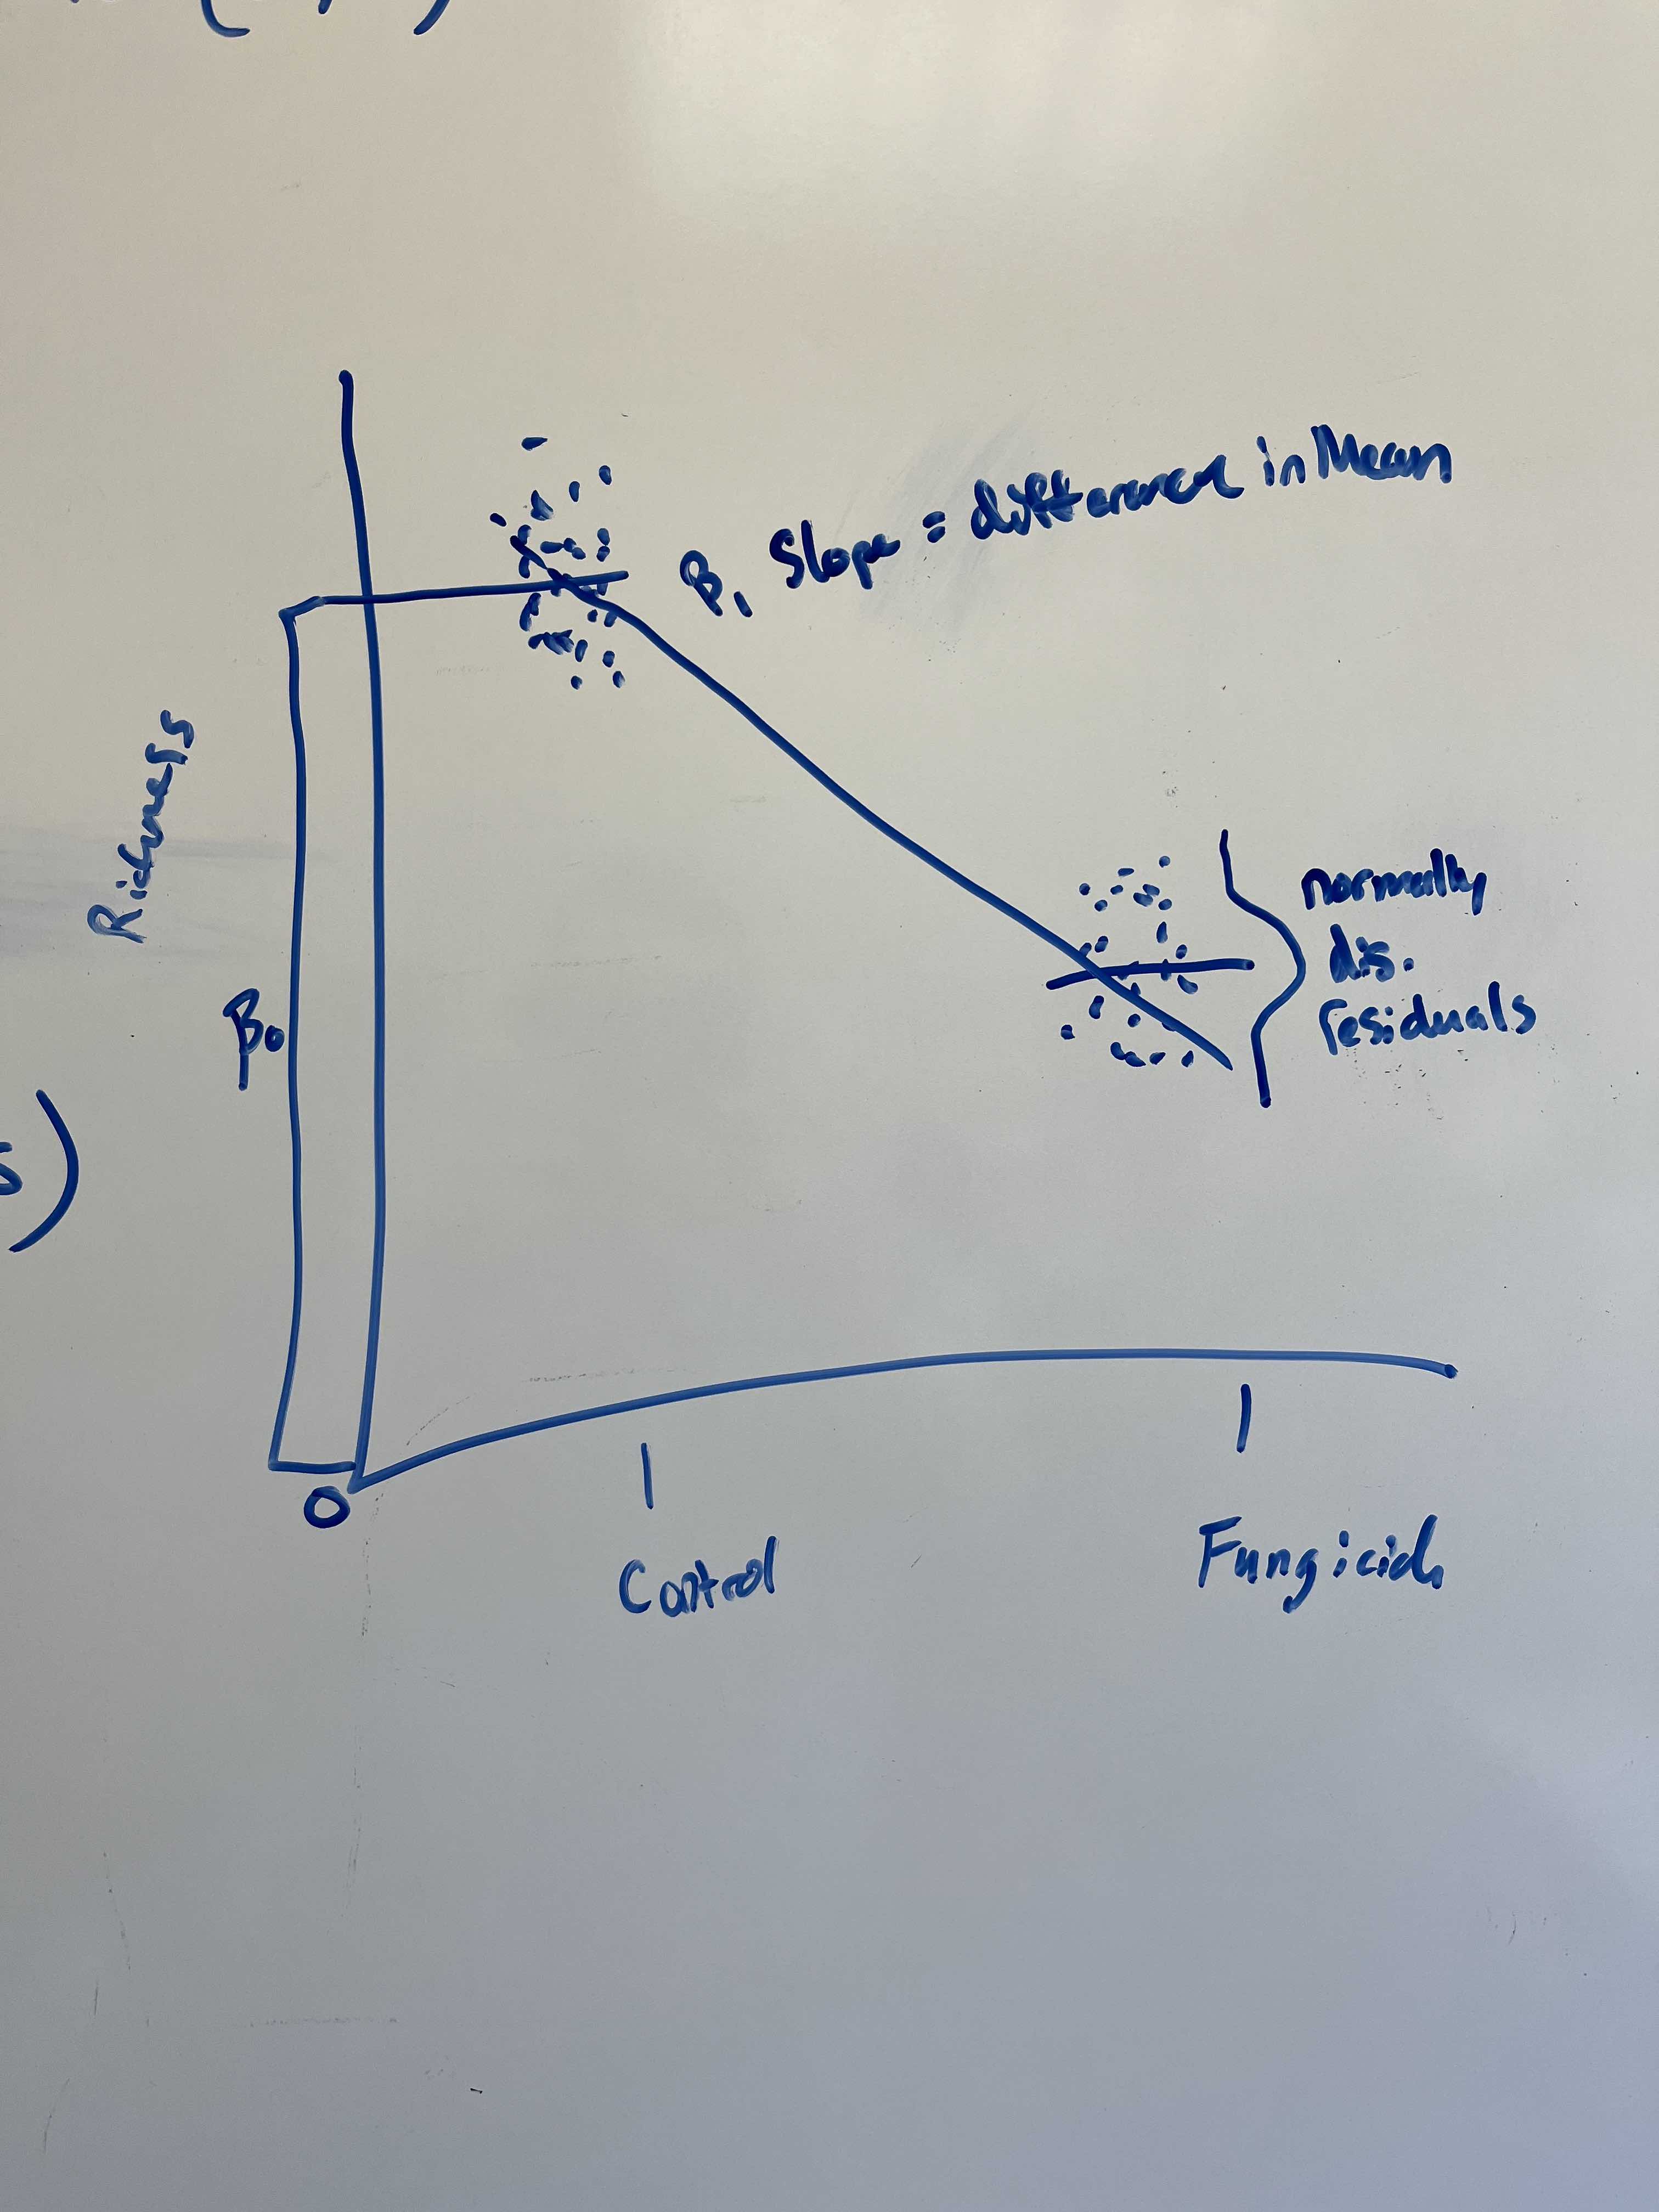 β₁ Slope = difference in Mean
Richness
normally
dis.
residuals
β₀
s)
0
Control
Fungicide